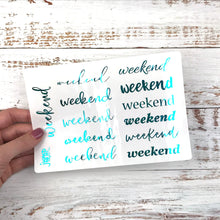 weekend
weekend
weekend
weekend
weekend
weekend
weekend
weekend
weekend
weekend
weekend
weekend